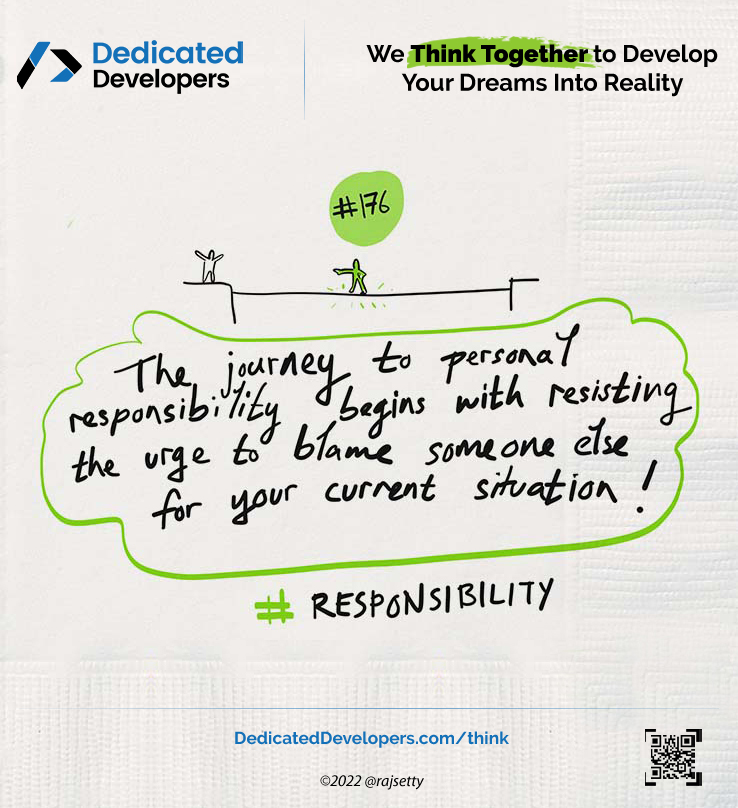 Dedicated
Developers
We Think Together to Develop
Your Dreams Into Reality
#176
The journey to personal
responsibility begins with resisting
the urge to blame someone else
for your current situation!
# RESPONSIBILITY
DedicatedDevelopers.com/think
©2022 @rajsetty